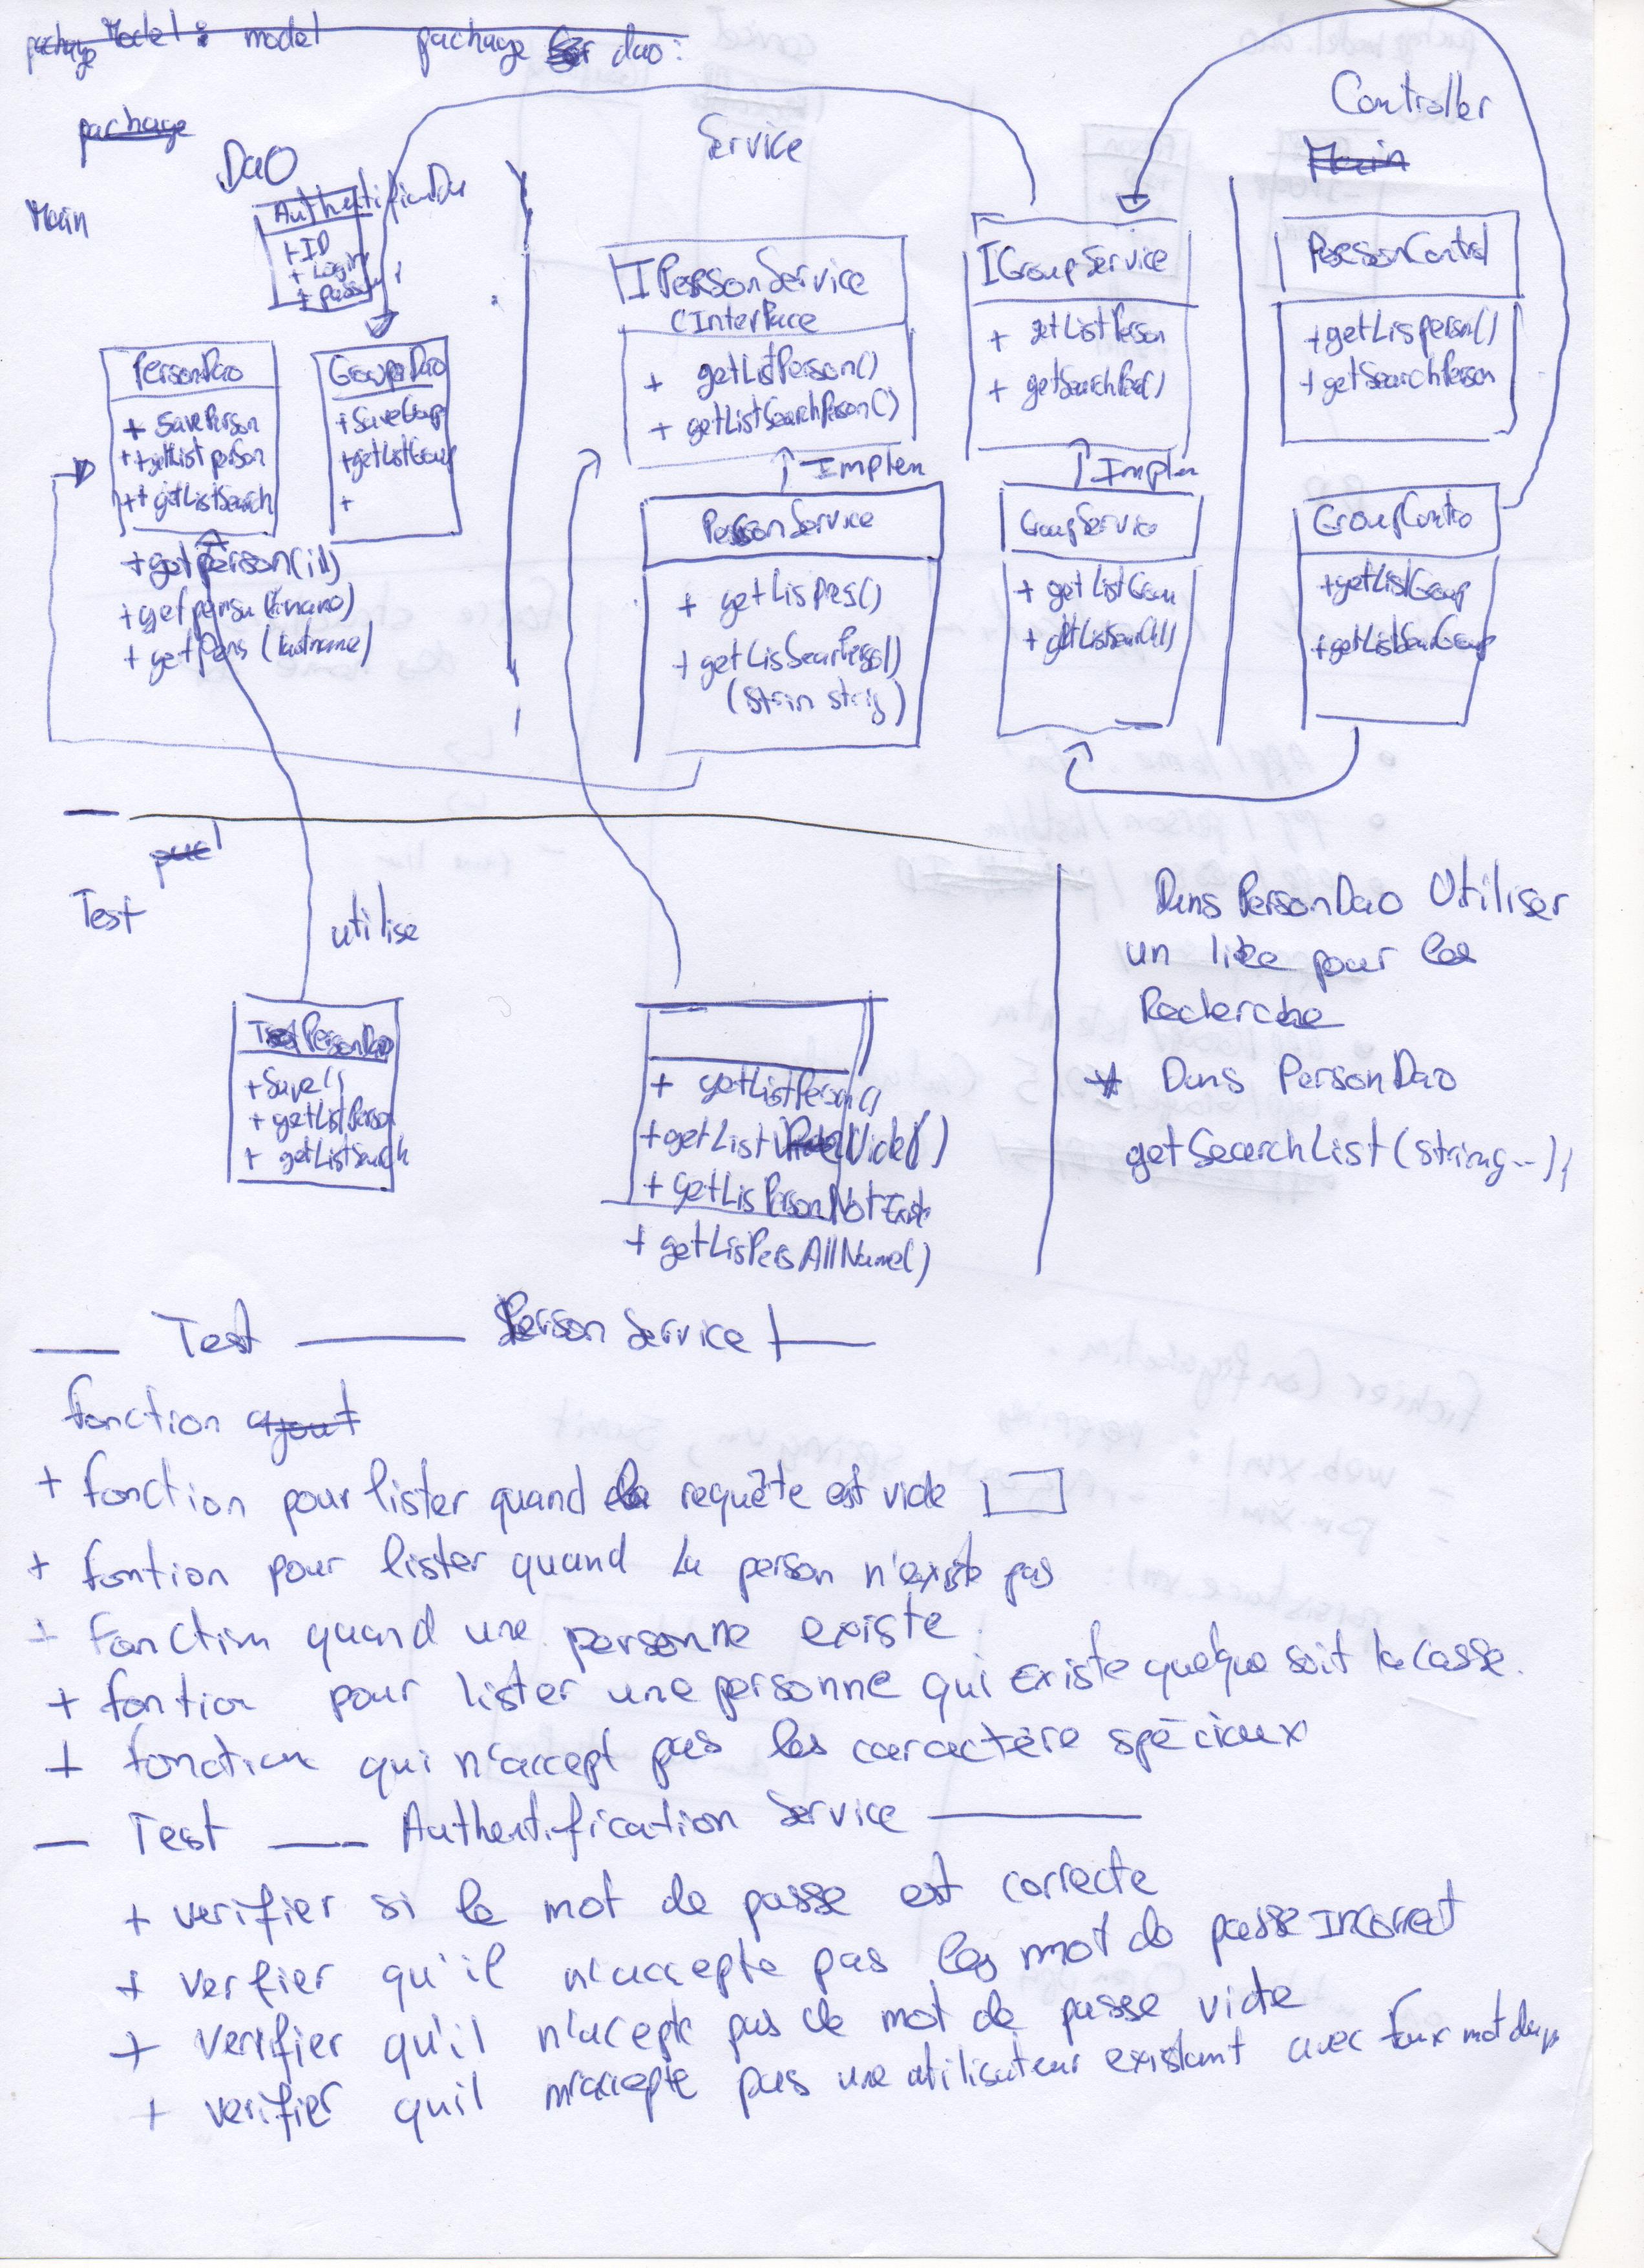 package Model : model package dao :
package
Main
DaO
Service
Controller
Main
+ ID
+ Login
PersonDao
+ SavePerson
+ getList person
+ getListSearch
+ getperson(id)
+ getPers (lastname)
GroupDao
+ SaveGroup
+ getListGroup
+
IPersonService
(Interface
+ getListPerson()
+ getListSearchPerson()
↑ Implem
PersonService
+ getLisPers()
+ getLisSearPers()
(strin strig)
IGroupService
+ getListPerson
↑ Implem
GroupService
+ getListGrou
PersonControl
+ getLisperson()
+ getSearchPerson
GroupContro
+ getListGroup
+ getListSearGroup
Test
utilise
TestPersonDao
+ Save()
+ getListPerson
+ getListSearch
+ getListPerson()
+ getList Vide()
+ getLisPersonNotExist
+ getLisPersAllName()
Dans PersonDao Utiliser
un like pour les
Recherche
* Dans PersonDao
getSearchList(string..);
Test PersonService
fonction ajout
+ fonction pour lister quand la requête est vide
+ fontion pour lister quand la person n'existe pas
+ fonction quand une personne existe.
+ fontion pour lister une personne qui existe quelque soit la casse.
+ fonction qui n'accept pas les caractère spéciaux
Test Authentification Service
+ verifier si le mot de passe est correcte
+ verfier qu'il n'accepte pas les mot de passe Incorrect
+ verifier qu'il n'acepte pas de mot de passe vide
+ verifier quil n'accepte pas une utilisateur existant avec faux mot de